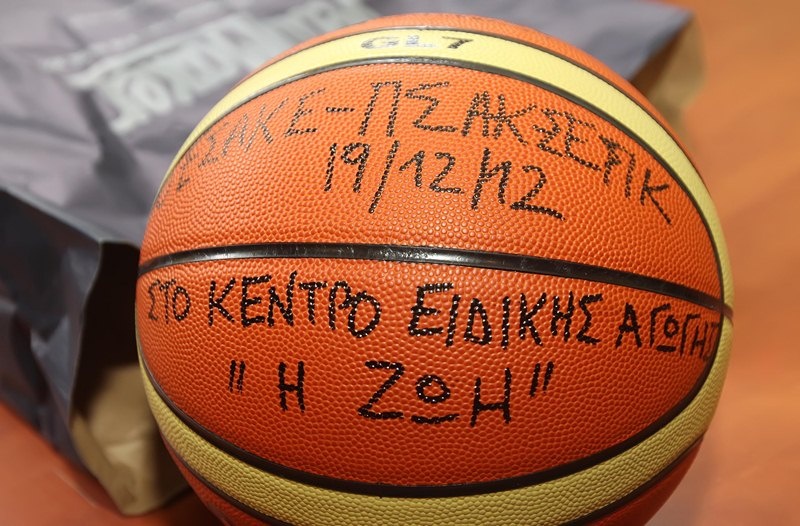 GL7
ΕΣΑΚΕ-ΠΣΑΚ ΣΕΦΙΚ
19/12/12
ΣΤΟ ΚΕΝΤΡΟ ΕΙΔΙΚΗΣ ΑΓΩΓΗΣ
"Η ΖΩΗ"